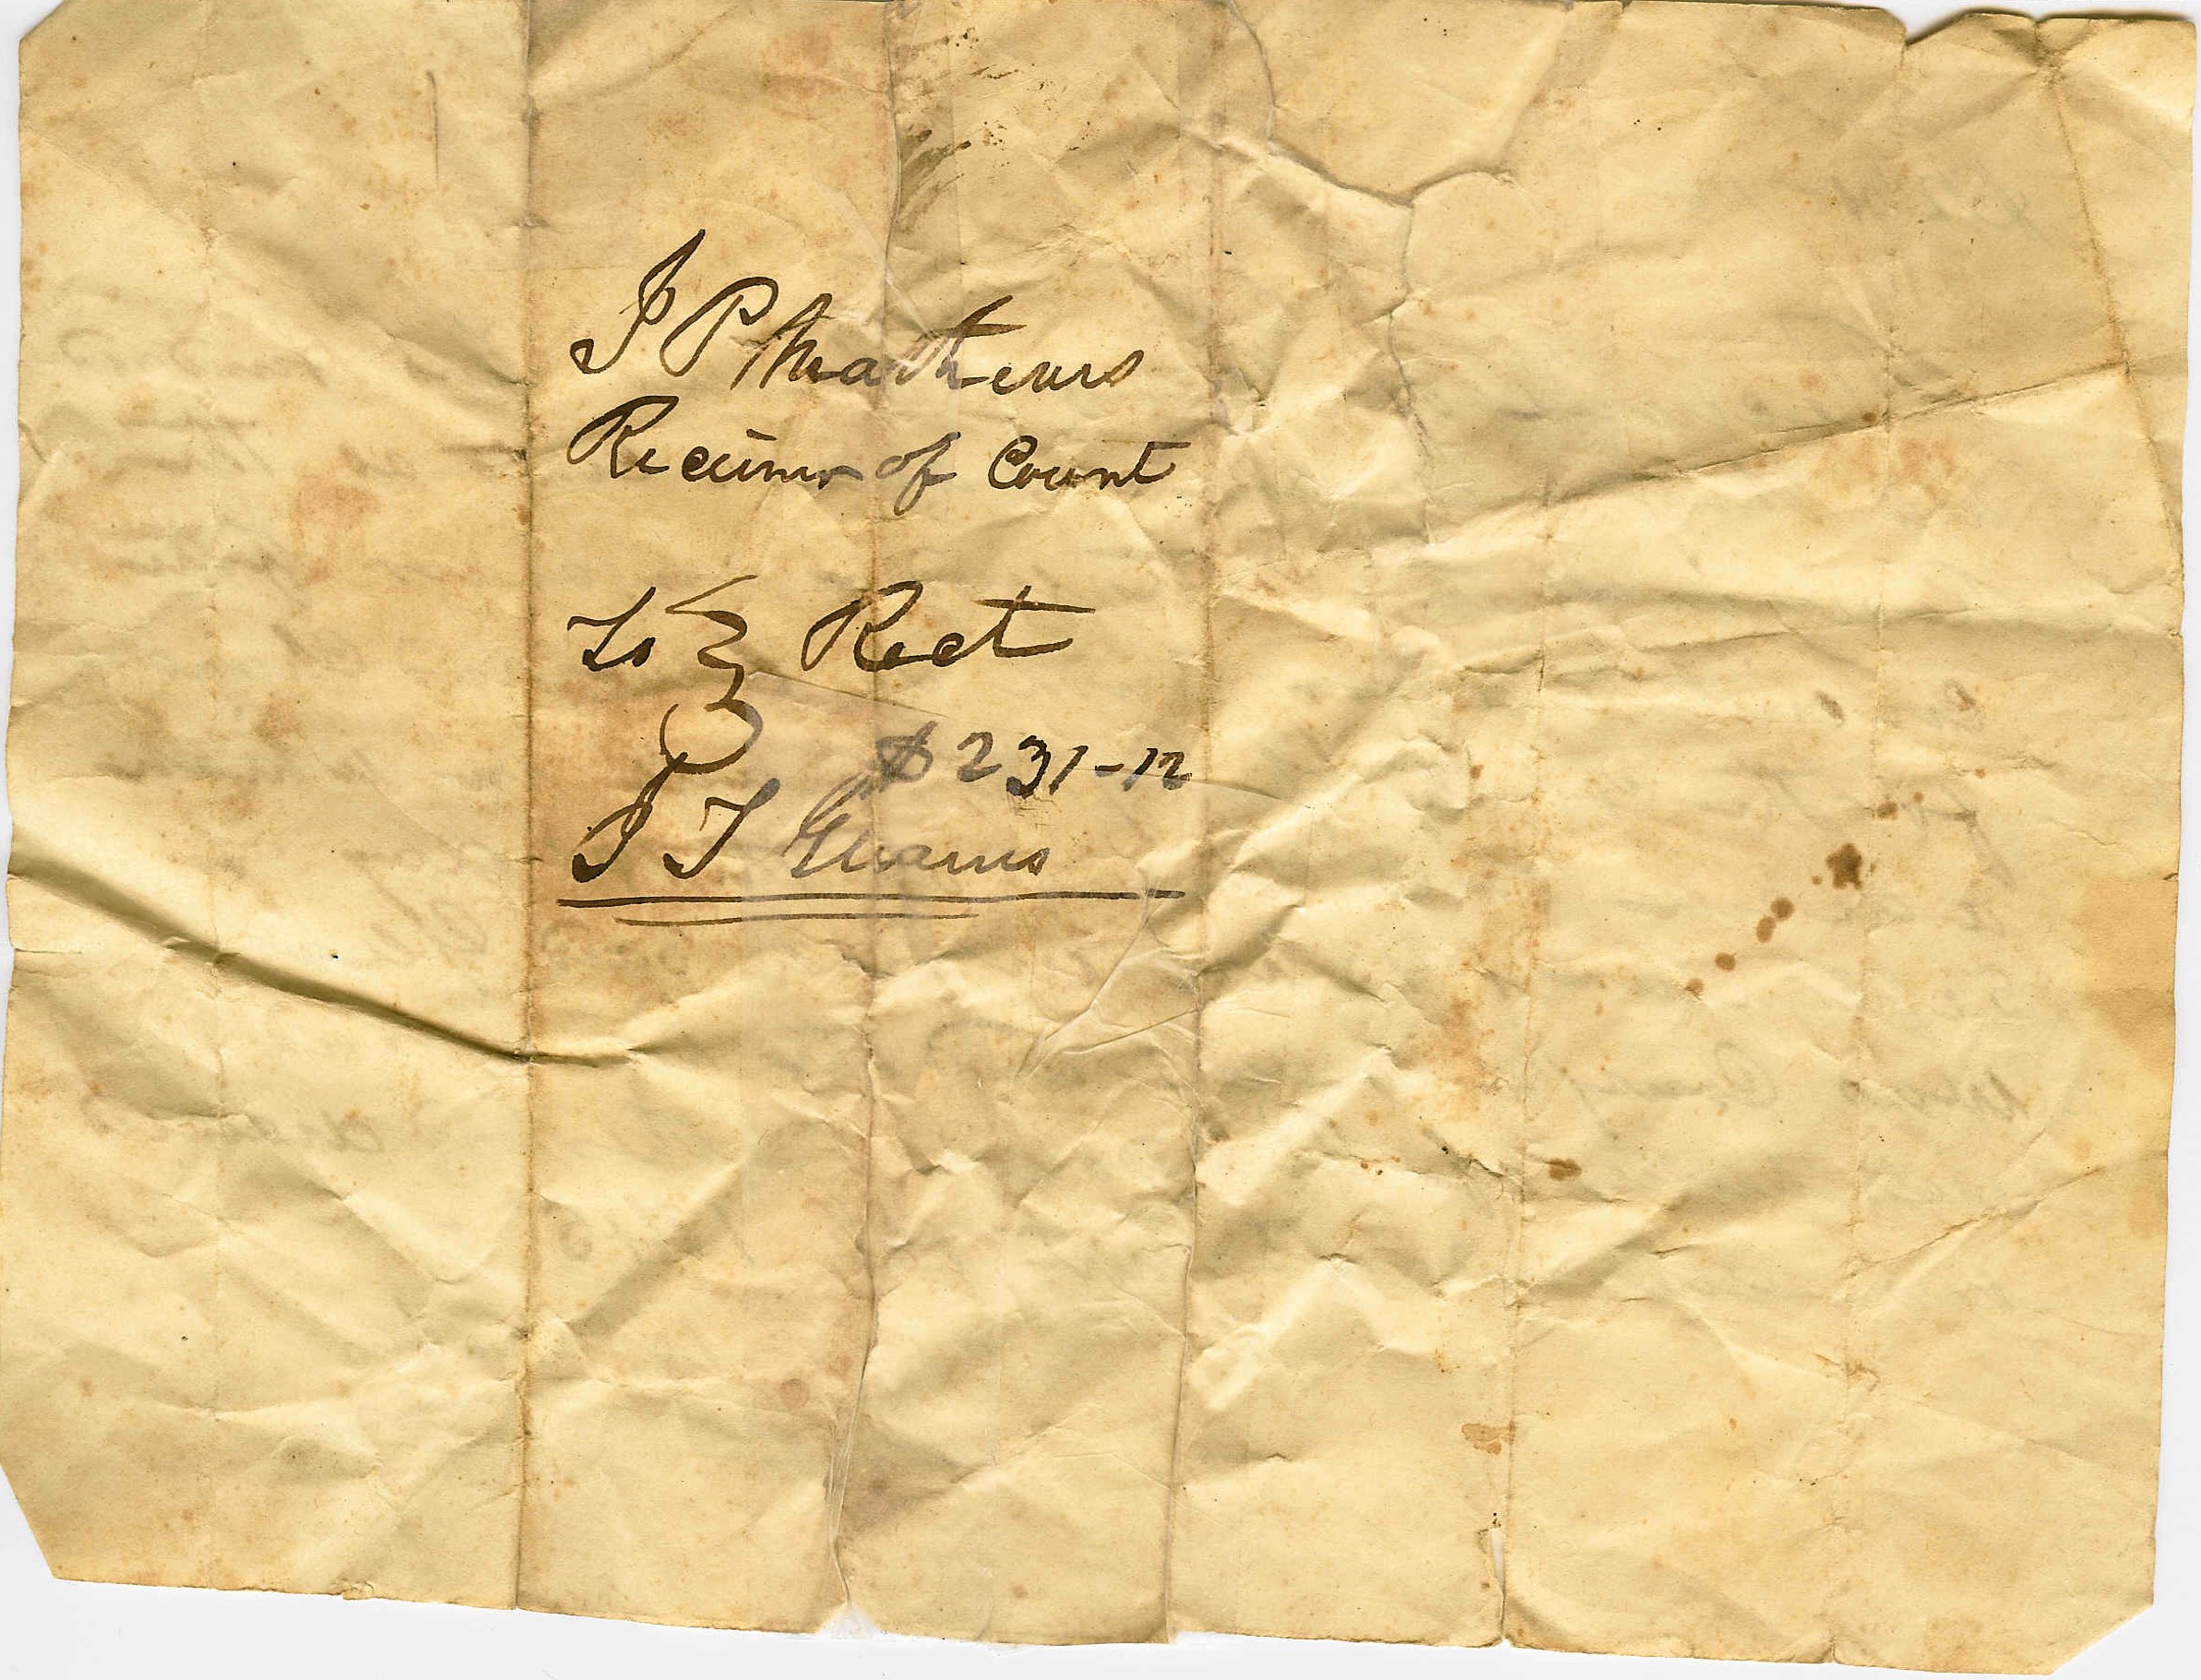 J P Mathews
Reciever of Count
To } Rect
$231-12
J T